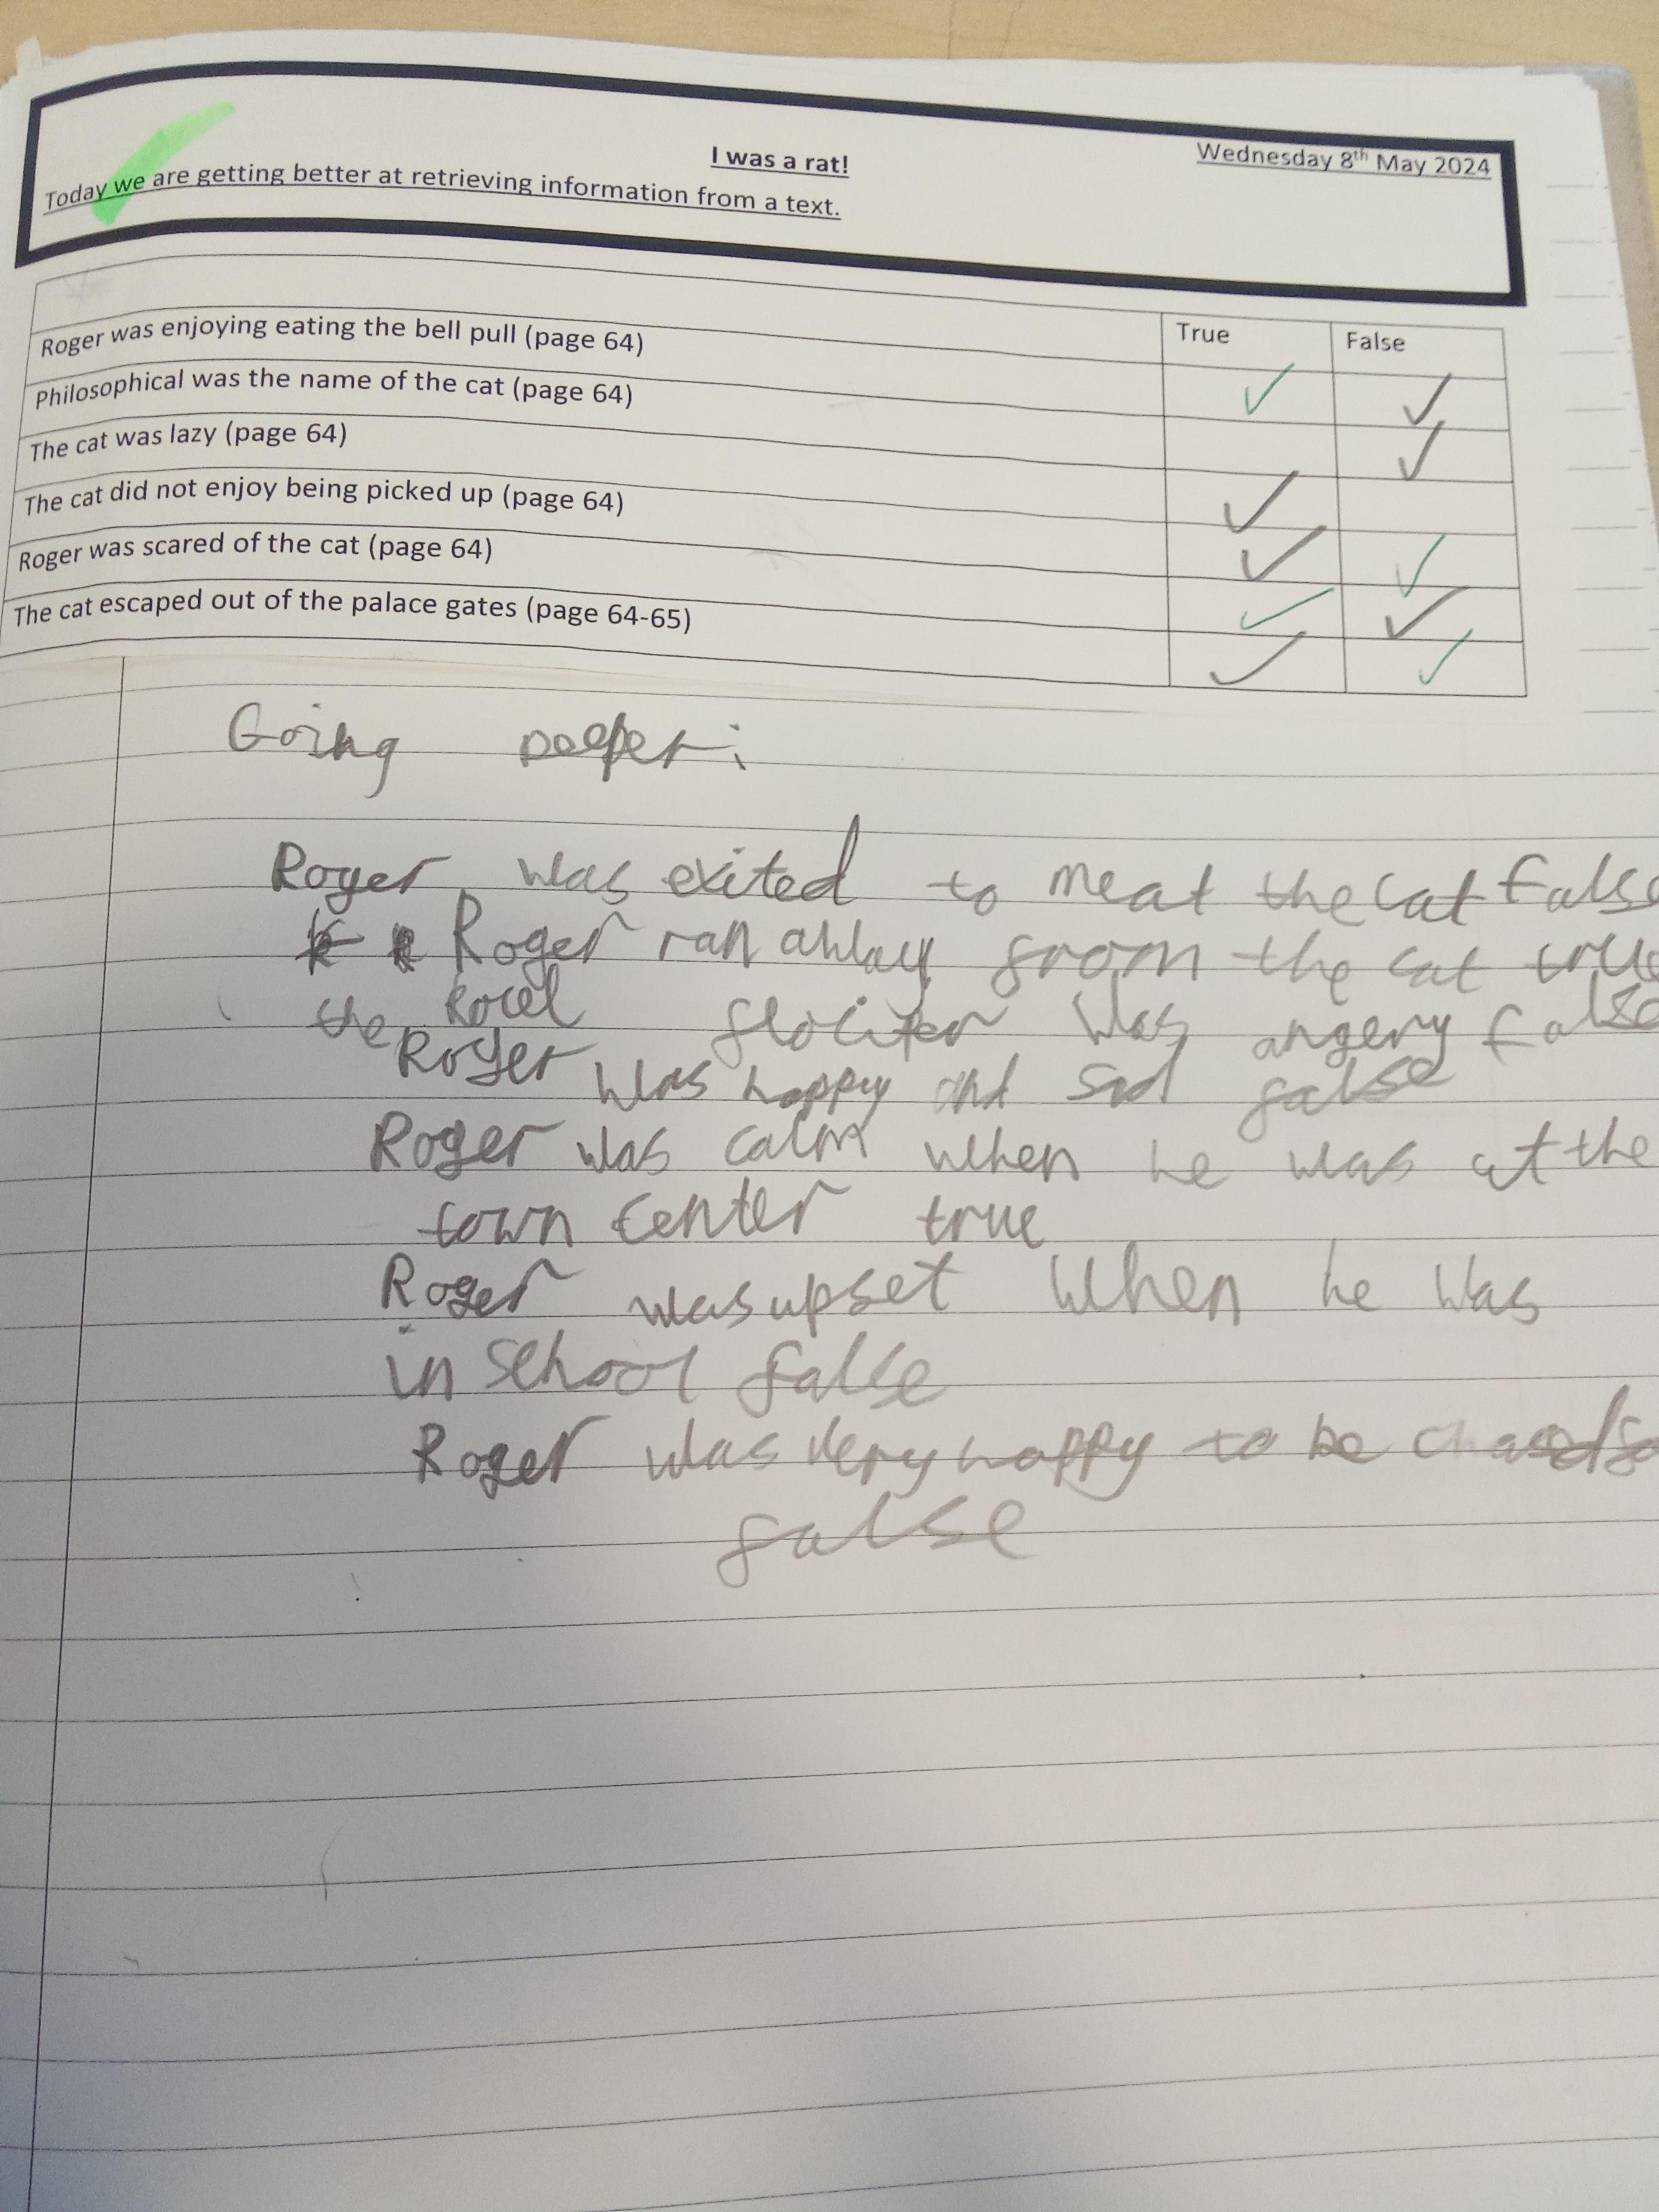 I was a rat!
Wednesday 8th May 2024
Today we are getting better at retrieving information from a text.
True False
Roger was enjoying eating the bell pull (page 64)
Philosophical was the name of the cat (page 64)
The cat was lazy (page 64)
The cat did not enjoy being picked up (page 64)
Roger was scared of the cat (page 64)
The cat escaped out of the palace gates (page 64-65)
Going Deeper:
Roger was exited to meat the cat false
Roger ran away from the cat true
the was angery false
Roger was happy and sad false
Roger was calm when he was at the
town center true
Roger was upset when he was
in school false
Roger was very happy to be
false